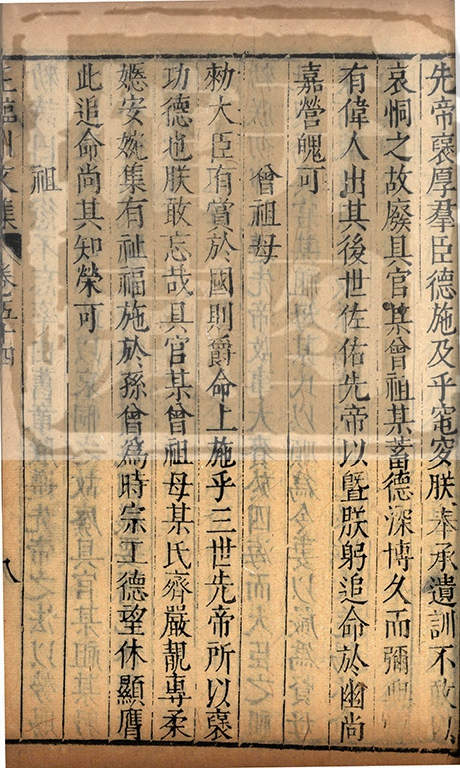 先帝襃厚羣臣德施及乎窀穸朕奉承遺訓不敢以
哀恫之故廢具官某曾祖某蓄德深博久而彌
有偉人出其後世佐佑先帝以曁朕躬追命於幽尚
嘉營魄可
曾祖母
勑大臣有當於國則爵命上施乎三世先帝所以襃
功德也朕敢忘哉具官某曾祖母某氏齊嚴靚專柔
嫕安婉集有祉福施於孫曾爲時宗工德望休顯膺
此追命尚其知榮可
祖
文集 卷五十四 八